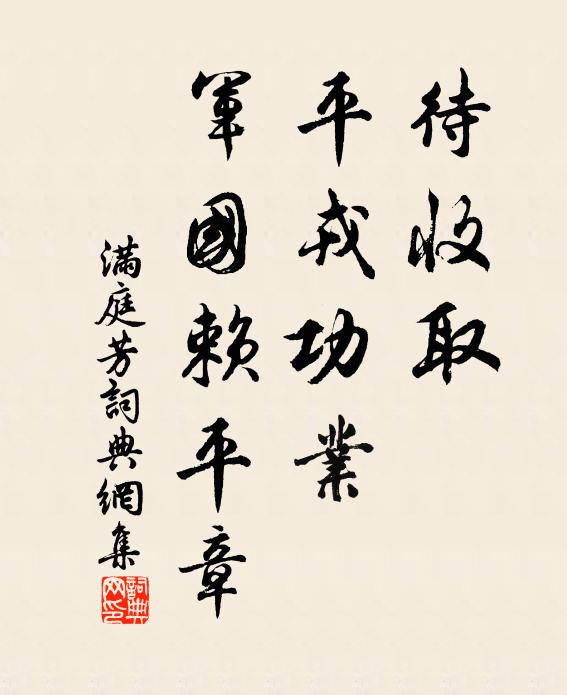 待收取
平戎功業
軍國賴平章
滿庭芳詞典網集
詞典网印